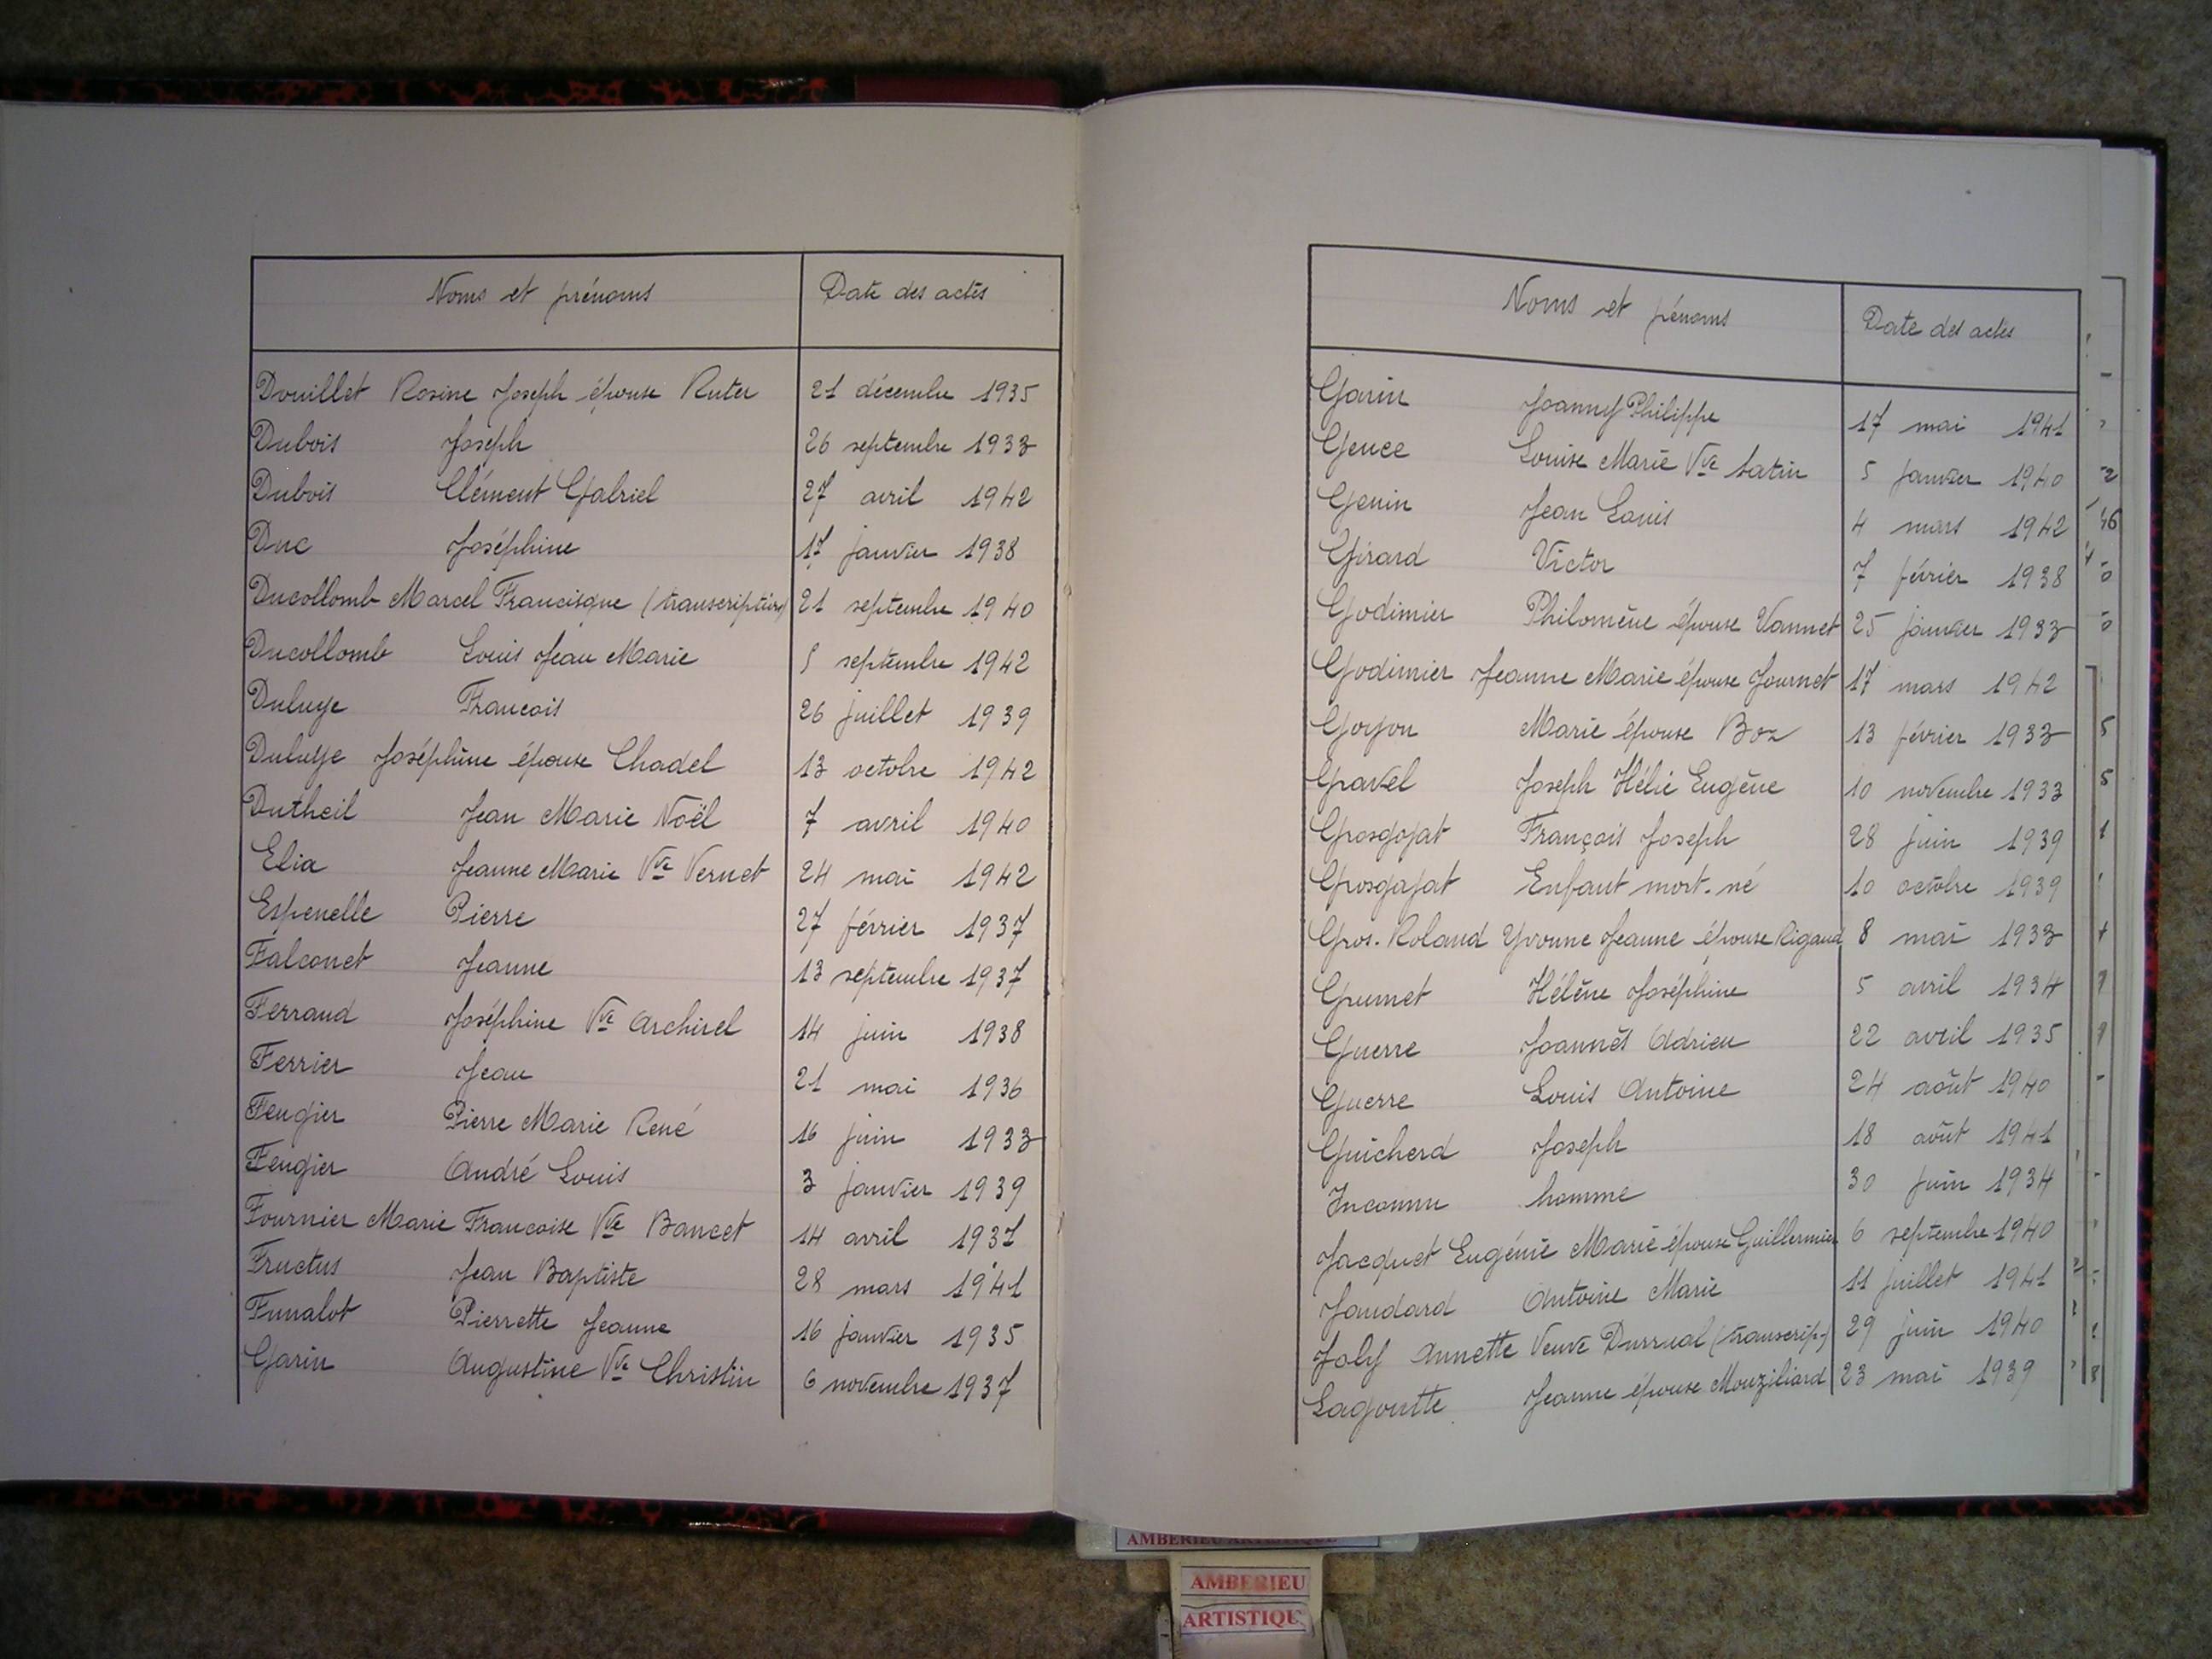 Noms et prénoms Date des actes
Douillet Rosine Joseph épouse Ruter 21 décembre 1935
Dubois Joseph 26 septembre 1933
Dubois Clément Gabriel 27 avril 1942
Duc Joséphine 17 janvier 1938
Ducollomb Marcel Francisque (transcription) 21 septembre 1940
Ducollomb Louis Jean Marie 5 septembre 1942
Duluye Francois 26 juillet 1939
Duluye Joséphine épouse Chadel 13 octobre 1942
Dutheil Jean Marie Noël 7 avril 1940
Elia Jeanne Marie Vve Vernet 24 mai 1942
Espenelle Pierre 27 février 1937
Falconet Jeanne 13 septembre 1937
Ferrand Joséphine Vve Archirel 14 juin 1938
Ferrier Jean 21 mai 1936
Feugier Pierre Marie René 16 juin 1933
Feugier André Louis 3 janvier 1939
Fournier Marie Francoise Vve Bancet 14 avril 1937
Fructus Jean Baptiste 28 mars 1941
Funalot Pierrette Jeanne 16 janvier 1935
Garin Augustine Vve Christin 6 novembre 1937
Noms et pénoms Date des actes
Garin Joanny Philippe 17 mai 1941
Gence Louise Marie Vve Satin 5 janvier 1940
Genin Jean Louis 4 mars 1942
Girard Victor 7 février 1938
Godimier Philomène épouse Vannet 25 janvier 1933
Godimier Jeanne Marie épouse Journet 17 mars 1942
Goyon Marie épouse Boz 13 février 1933
Gravel Joseph Hélie Eugène 10 novembre 1933
Grosgojat François Joseph 28 juin 1939
Grosgojat Enfant mort-né 10 octobre 1939
Gros-Roland Yvonne Jeanne épouse Rigaud 8 mai 1933
Grumet Hélène Joséphine 5 avril 1934
Guerre Joannès Adrien 22 avril 1935
Guerre Louis Antoine 24 août 1940
Guicherd Joseph 18 août 1941
Inconnu homme 30 juin 1934
Jacquet Eugénie Marie épouse Guillermier 6 septembre 1940
Jandard Antoine Marie 11 juillet 1941
Joly Annette Veuve Durrual (transcrip.) 29 juin 1940
Lagoutte Jeanne épouse Mouziliard 23 mai 1939
AMBERIEU ARTISTIQUE
AMBERIEU
ARTISTIQU